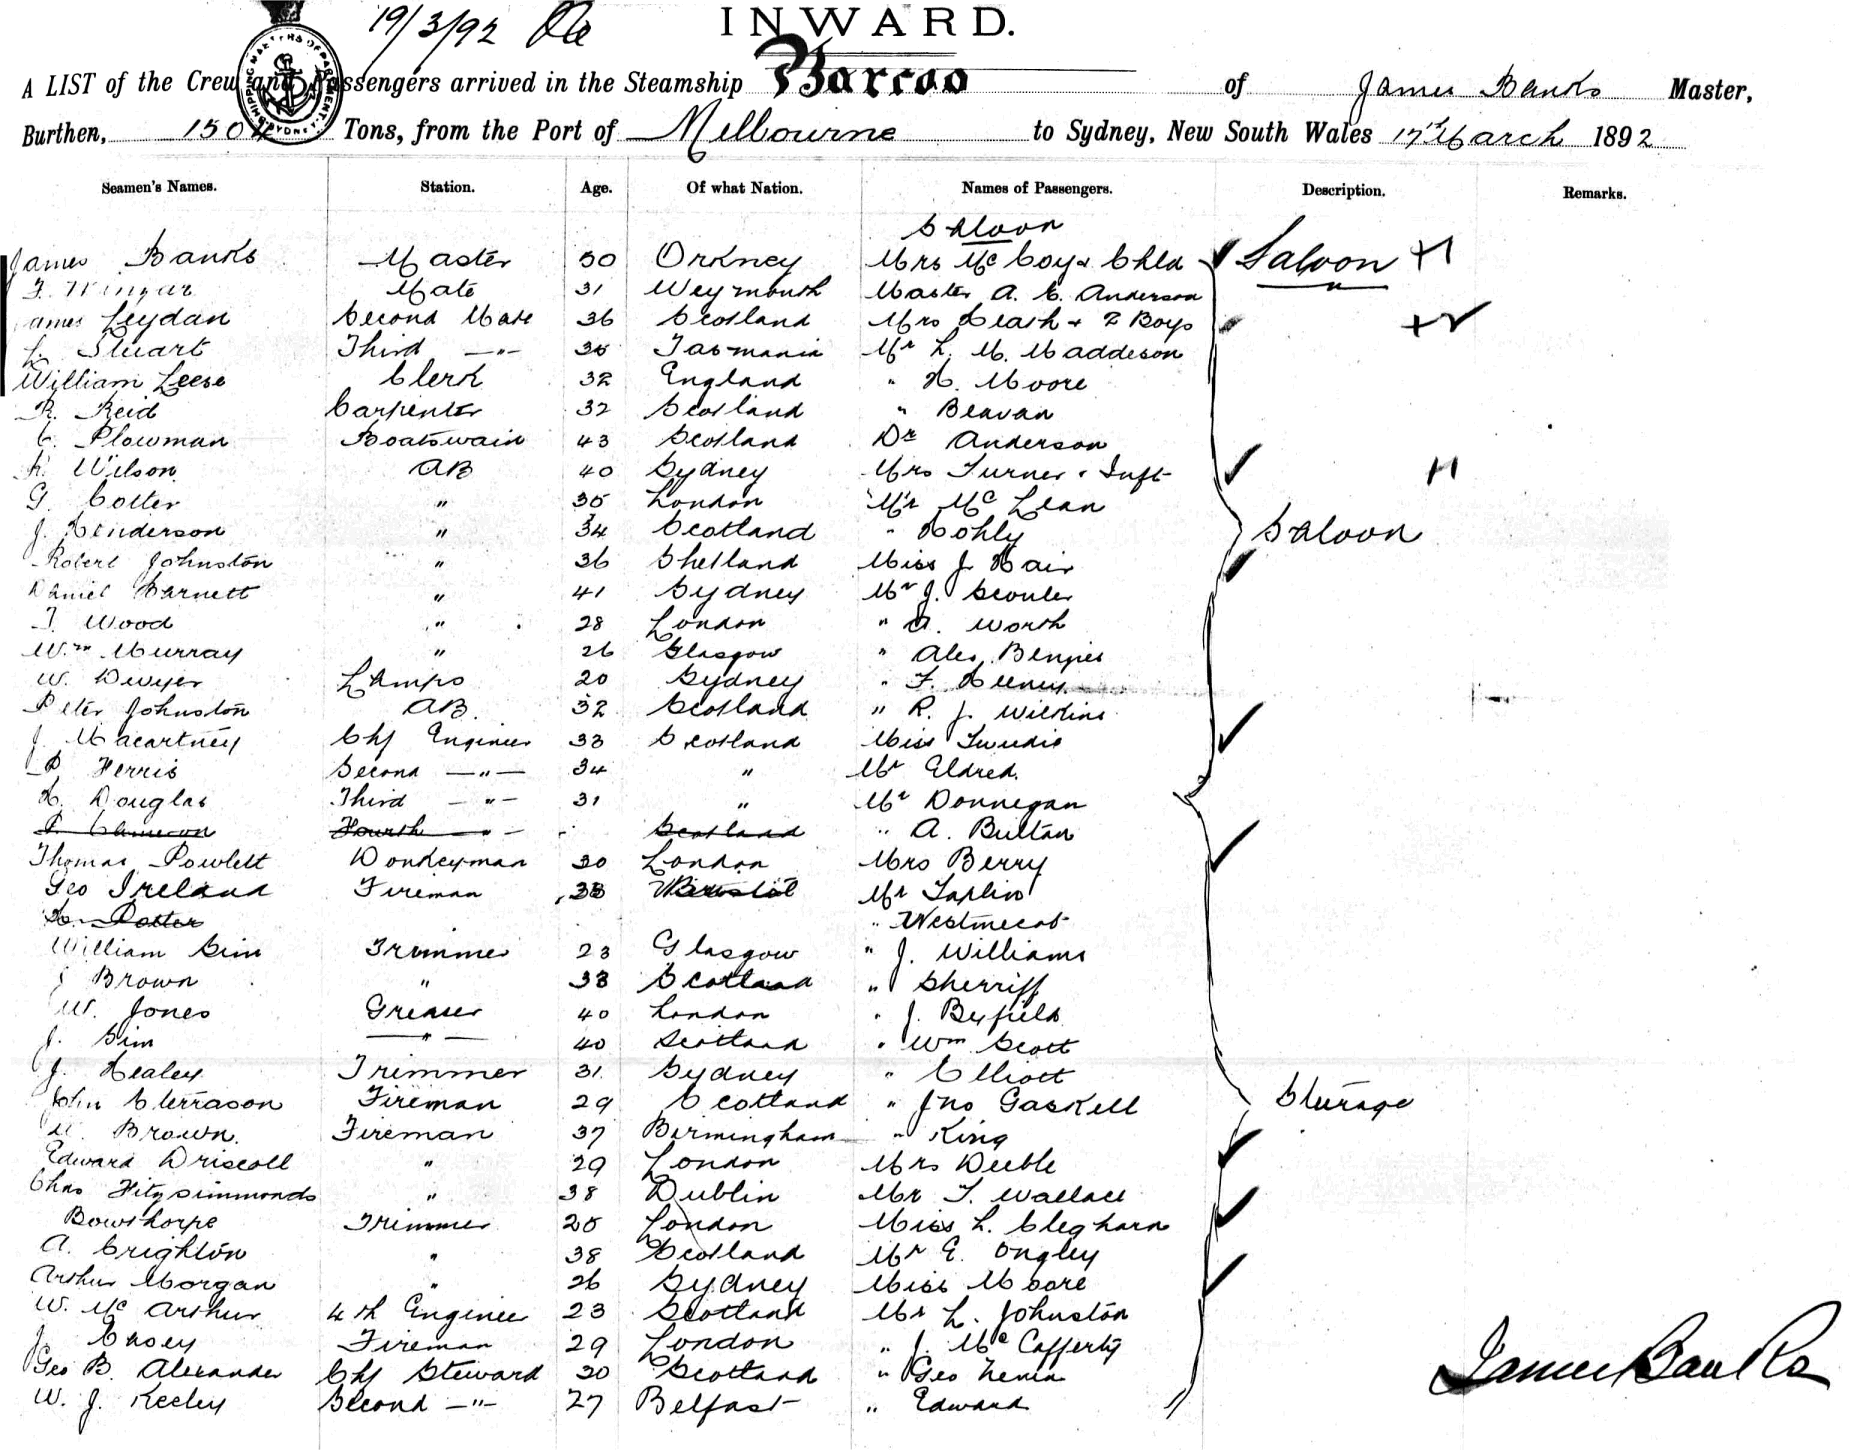 19/3/92
INWARD.
A LIST of the Crew and Passengers arrived in the Steamship Barcoo of James Banks Master,
Burthen, 1504 Tons, from the Port of Melbourne to Sydney, New South Wales 17th March 1892
Seamen's Names. Station. Age. Of what Nation. Names of Passengers. Description. Remarks.
Saloon
James Banks Master 50 Orkney Mrs McCoy & Chld Saloon
Mate 31 Weymouth Master A. E. Anderson
James Leydan Second Mate 36 Scotland Mrs Heath & 2 Boys
L. Stuart Third —"— Tasmania Mr L. M. Maddeson
William Leese Clerk 32 England " H. Moore
R. Reid Carpenter 32 Scotland " Beavan
C. Plowman Boatswain 43 Scotland Dr Anderson
Wilson AB 40 Sydney Mrs Turner & Inft
G. Cotter " 35 London Mr McLean
J. Henderson " 34 Scotland " Hohly Saloon
Robert Johnston " 36 Shetland Miss J. Hair
Daniel Barnett " 41 Sydney Mr J. Scouler
T. Wood " 28 London " A. Worth
Wm Murray " 26 Glasgow " Alex
W. Dwyer Lamps 20 Sydney "
Peter Johnston AB. 32 Scotland " R. J. Wilkins
J. Macartney Chf Engineer 33 Scotland Miss Tweedie
Ferris Second —"— 34 " Mr Eldred
H. Douglas Third —"— 31 " Mr Donnegan
P. Cameron Fourth " — Scotland " A. Bultan
Thomas Powlett Donkeyman 30 London Mrs Berry
Geo Ireland Fireman 38 Bristol Mr Taplin
H. Potter "
William Sim Trimmer 23 Glasgow " J. Williams
J Brown " 38 Scotland " Sherriff
W. Jones Greaser 40 London " J. Byfield
J. Sim —"— 40 Scotland " Wm Scott
J. Healey Trimmer 31 Sydney " Elliott
John Fireman 29 Scotland " Jno Gaskell Sturage
Brown. Fireman 37 Birmingham " King
Edward Driscoll " 29 London Mrs Deeble
Chas Fitzsimmonds " 38 Dublin Mr T. Wallace
Bowthorpe Trimmer 25 London Miss L. Cleghorn
A. Crighton " 38 Scotland Mr E. Ongley
Arthur Morgan " 26 Sydney Miss Moore
W. McArthur 4th Engineer 23 Scotland Mr L. Johnston
J. Casey Fireman 29 London " J. McCafferty
Geo B. Alexander Chf Steward 30 Scotland " Geo
W. J. Keeley Second —"— 27 Belfast " Edward
James Banks